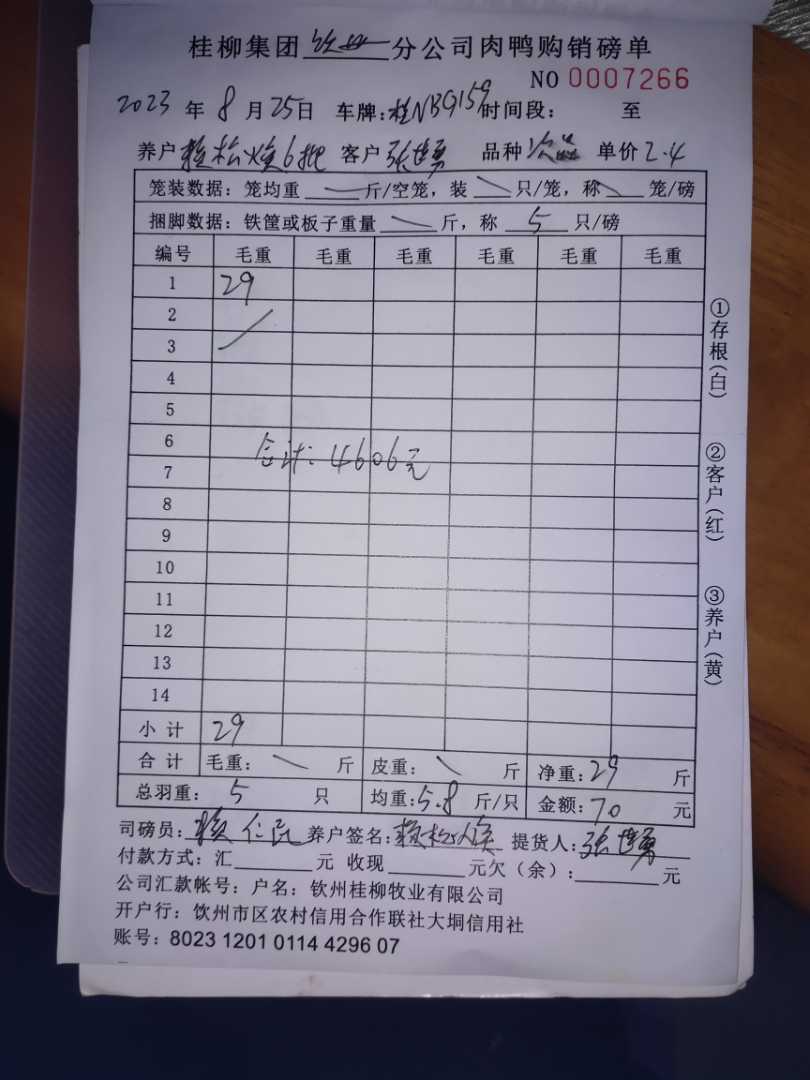 桂柳集团钦州分公司肉鸭购销磅单
NO 0007266
2023 年 8 月 25日 车牌:桂NB9159 时间段: 至
养户 赖松焕6批 客户 张世勇 品种 次品 单价 2.4
笼装数据: 笼均重 斤/空笼, 装 只/笼, 称 笼/磅
捆脚数据: 铁筐或板子重量 斤, 称 5 只/磅
编号 毛重 毛重 毛重 毛重 毛重 毛重
1 29
2
3
4
5
6
合计: 4606元
7
8
9
10
11
12
13
14
小 计 29
合 计 毛重: 斤 皮重: 斤 净重: 29 斤
总羽重: 5 只 均重: 5.8 斤/只 金额: 70 元
司磅员: 赖仁民 养户签名: 赖松焕 提货人: 张世勇
付款方式: 汇 元 收现 元欠（余）: 元
公司汇款帐号: 户名: 钦州桂柳牧业有限公司
开户行: 饮州市区农村信用合作联社大垌信用社
账号: 8023 1201 0114 4296 07
①存根(白)
②客户(红)
③养户(黄)